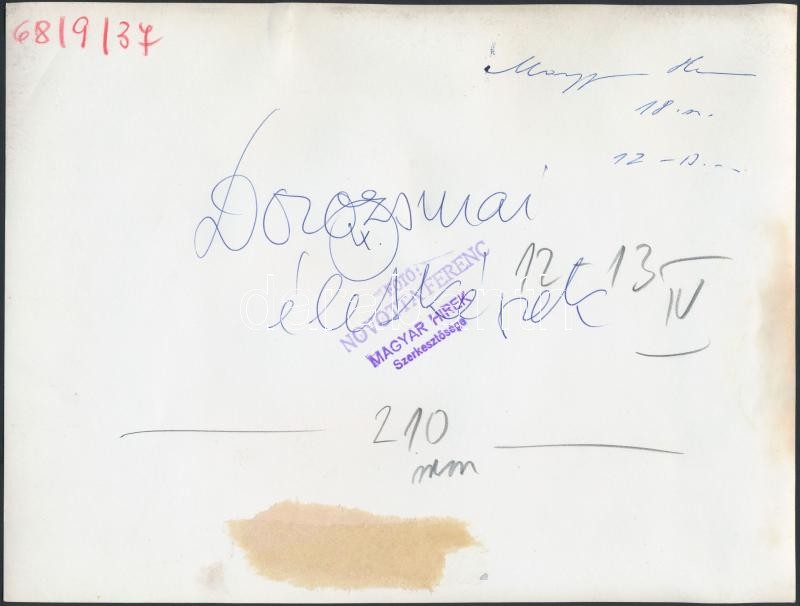 68/9/37
Magyar H
18. n.
12 - 13.
Dorozsmai
x.
életképek
12 13 IV
FOTÓ:
NOVOTTA FERENC
MAGYAR HIREK
Szerkesztősége
210
mm